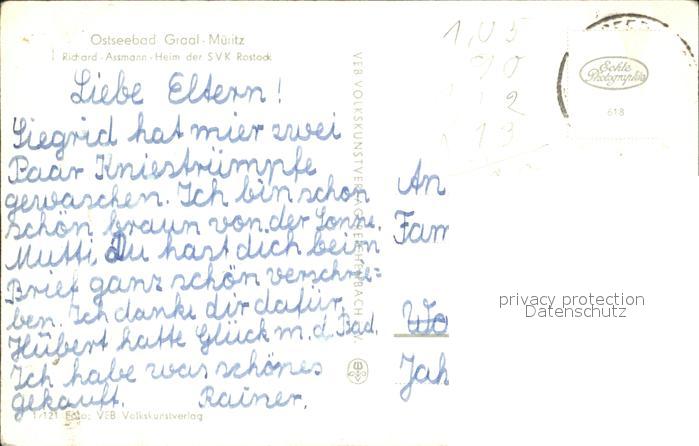 Ostseebad Graal-Müritz
Richard-Assmann-Heim der SVK Rostock
Liebe Eltern!
Siegrid hat mier zwei
Paar Kniestrümpfe
gewaschen. Ich bin schon
schön braun von der Sonne.
Mutti Du hast dich beim
Brief ganz schön verschrie=
ben. Ich danke dir dafür,
Hubert hatte Glück m. d. Bad.
Ich habe was schönes
gekauft. Rainer.
1/121 Foto: VEB Volkskunstverlag
VEB VOLKSKUNSTVERLAG REICHENBACH I. V.
1,05
90
Echte
Photographie
618
An
Fam
Wo
Jah
privacy protection
Datenschutz